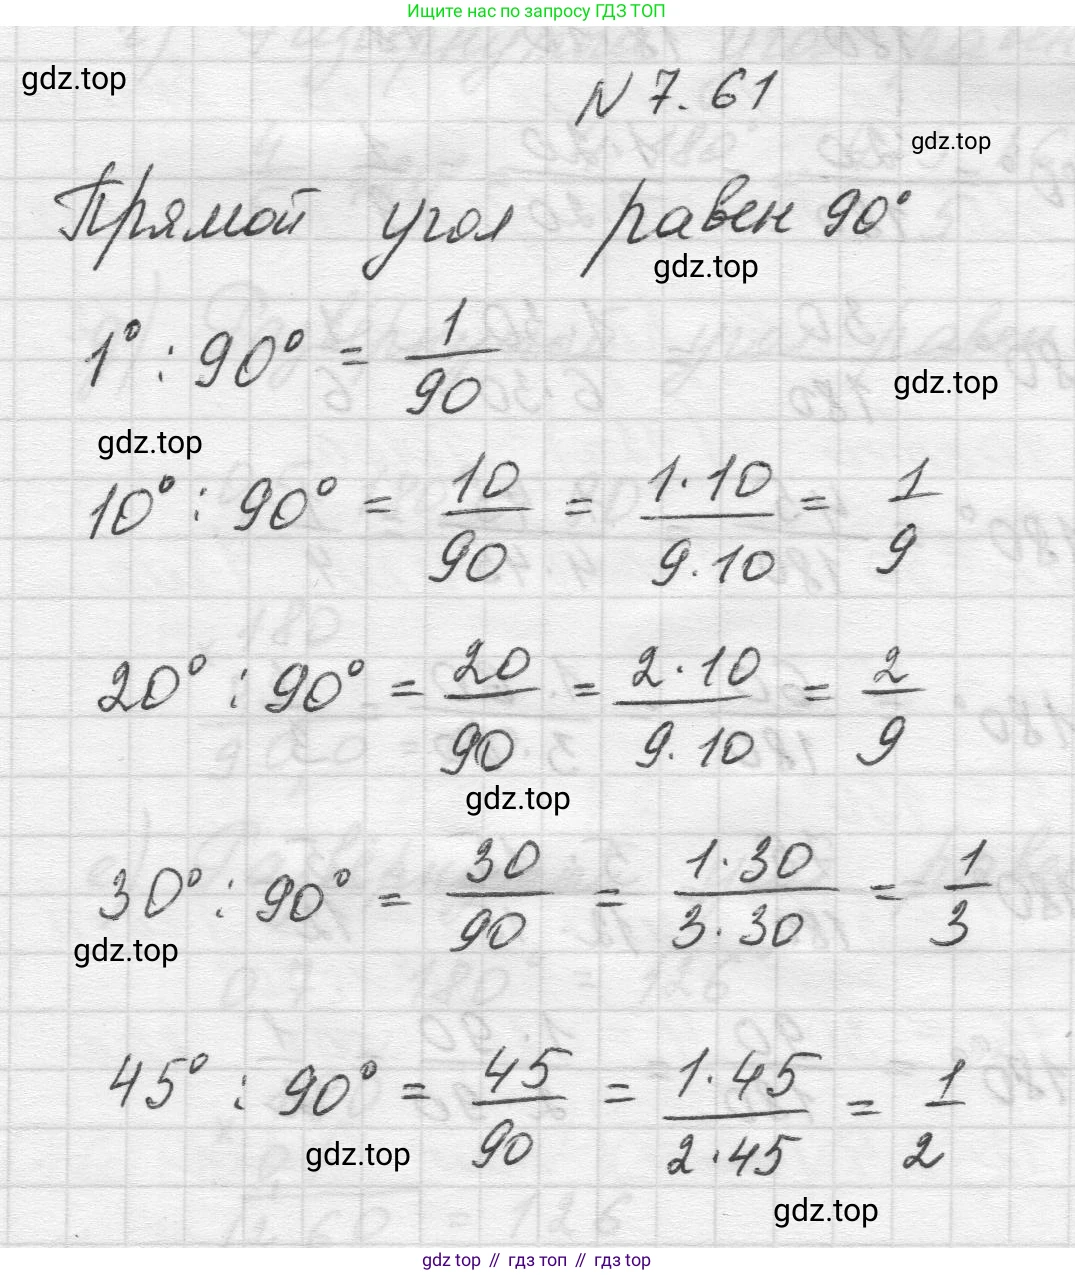 Ищите нас по запросу ГДЗ ТОП
gdz.top
N 7.61
gdz.top
Прямой угол равен 90°
gdz.top
1° : 90° = 1/90
gdz.top
gdz.top
10° : 90° = 10/90 = 1·10/9·10 = 1/9
20° : 90° = 20/90 = 2·10/9·10 = 2/9
gdz.top
30° : 90° = 30/90 = 1·30/3·30 = 1/3
gdz.top
45° : 90° = 45/90 = 1·45/2·45 = 1/2
gdz.top
gdz.top
gdz top // гдз топ // гдз top